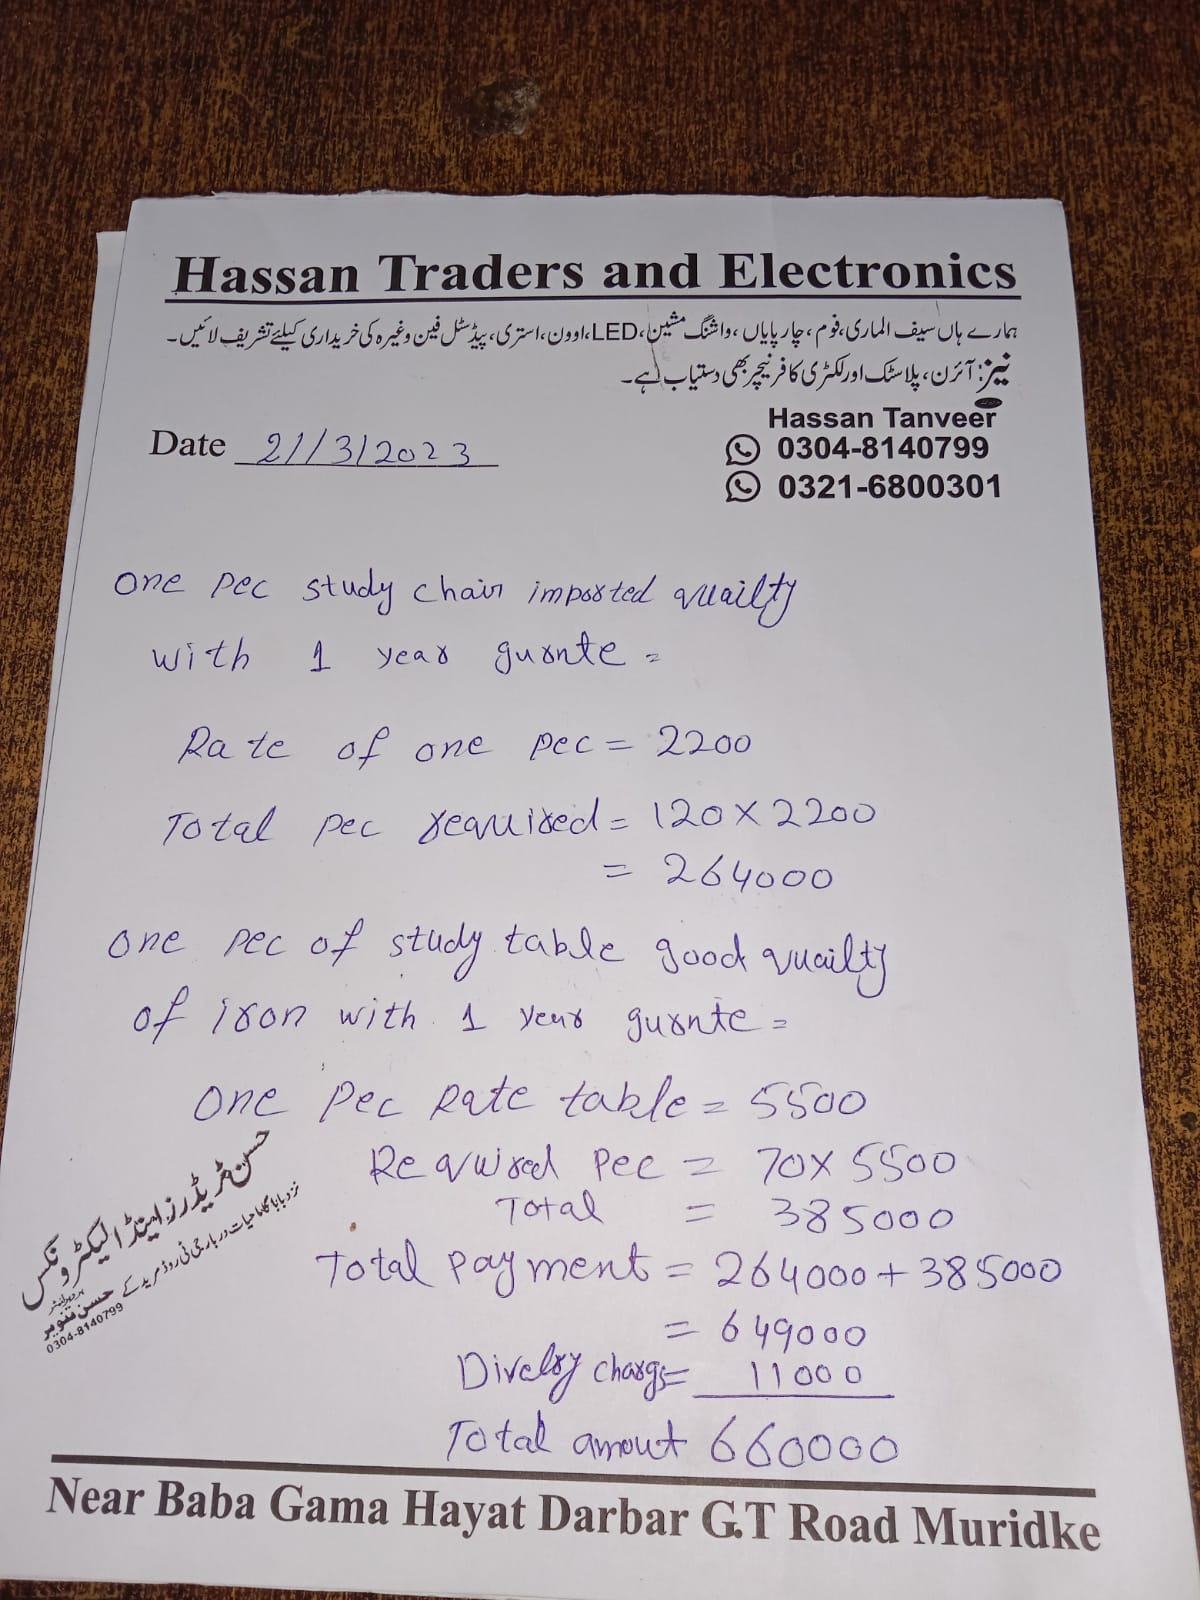 Hassan Traders and Electronics
ہمارے ہاں سیف الماری، فوم، چارپایاں، واشنگ مشین، LED، اوون، استری، پیڈسٹل فین وغیرہ کی خریداری کیلئے تشریف لائیں۔
نیز: آئرن، پلاسٹک اور لکڑی کا فرنیچر بھی دستیاب ہے۔
Hassan Tanveer
Date 21/3/2023
0304-8140799
0321-6800301
one pec study chair imported quailty
with 1 year gurnte =
Rate of one pec = 2200
Total pec required = 120 X 2200
= 264000
one pec of study table good quailty
of iron with 1 year gurnte =
one Pec Rate table = 5500
Required Pec = 70 X 5500
Total = 385000
Total payment = 264000 + 385000
= 649000
Divelry charges = 11000
Total amout 660000
حسن ٹریڈرز اینڈ الیکٹرونکس
نزد بابا گاما حیات دربار جی ٹی روڈ مریدکے
حسن تنویر
0304-8140799
Near Baba Gama Hayat Darbar G.T Road Muridke